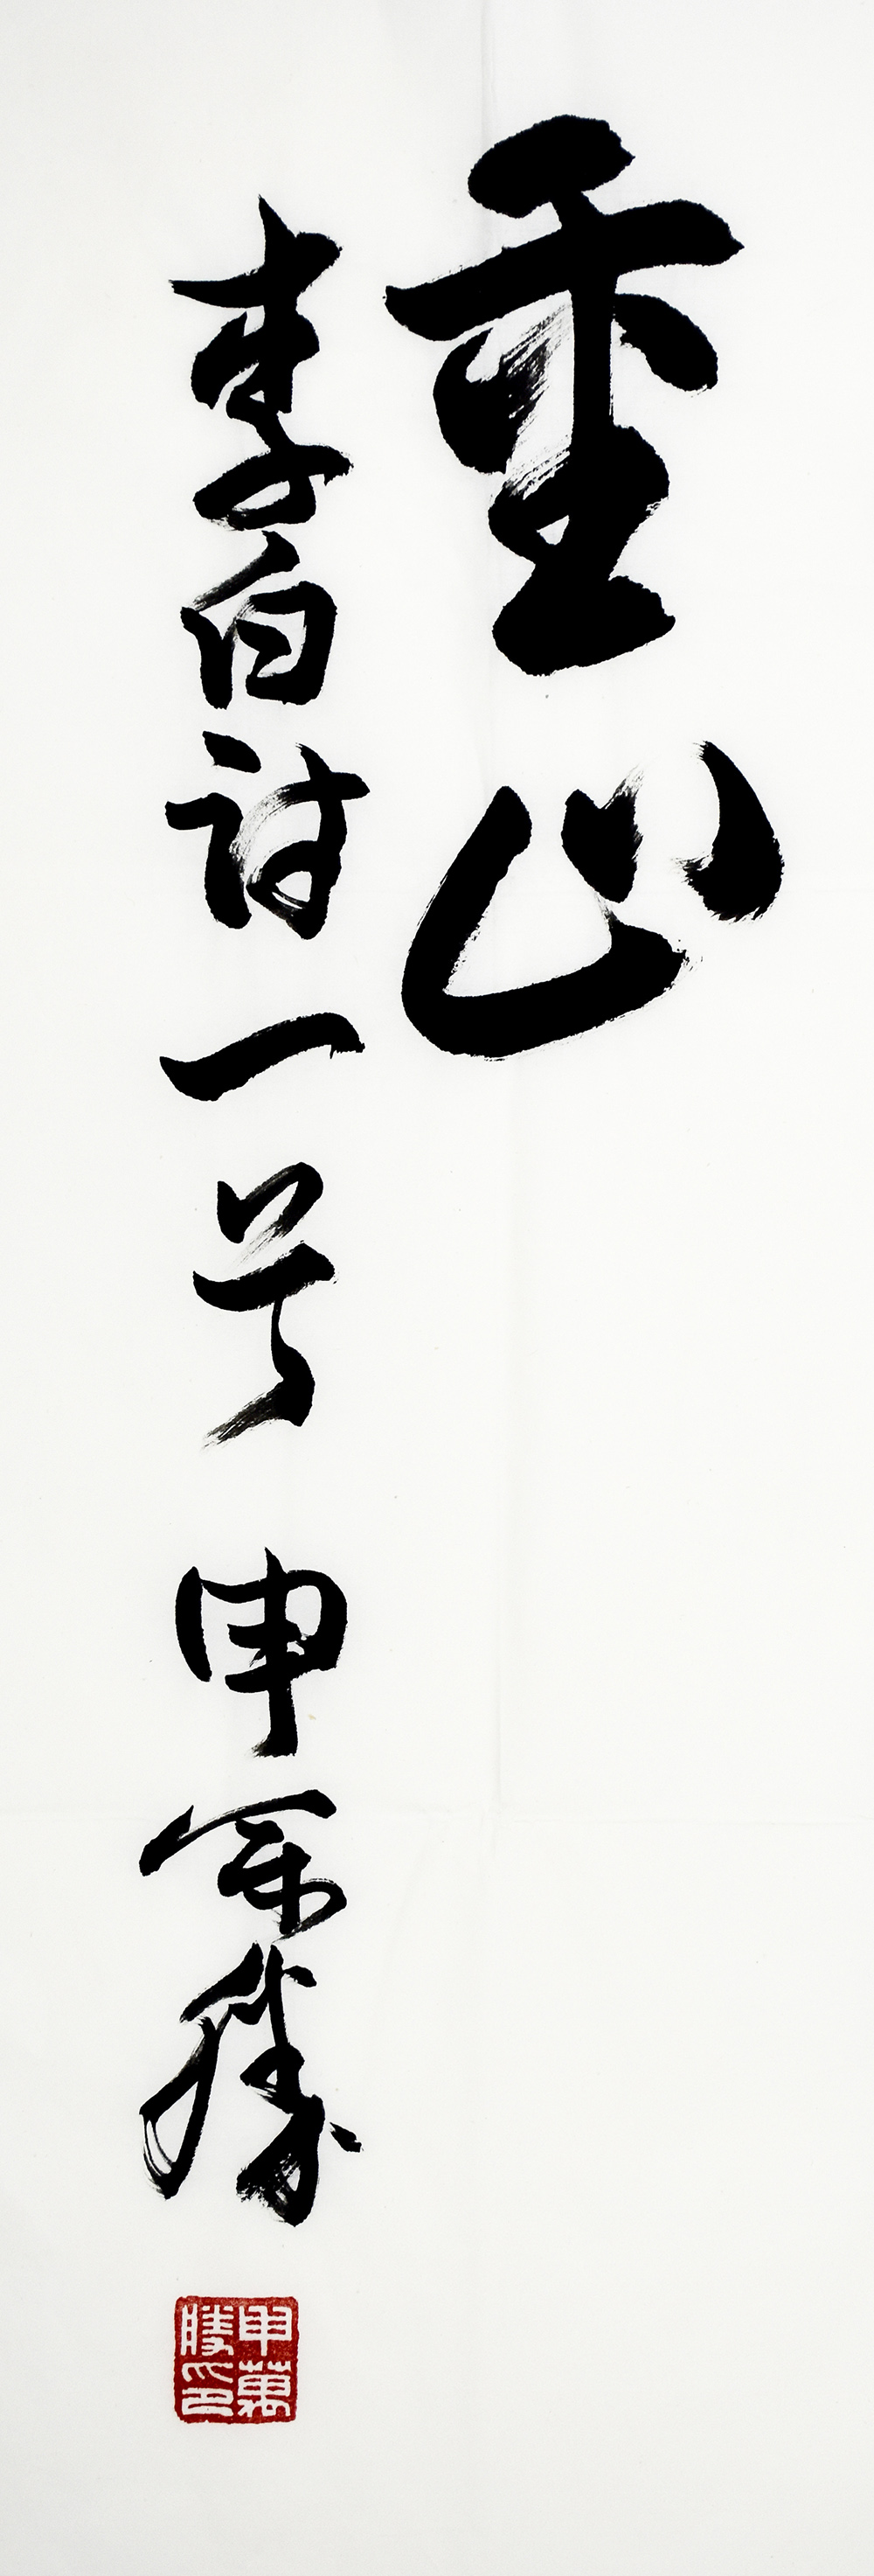 重山
李白诗一首 申萬勝
申萬勝印